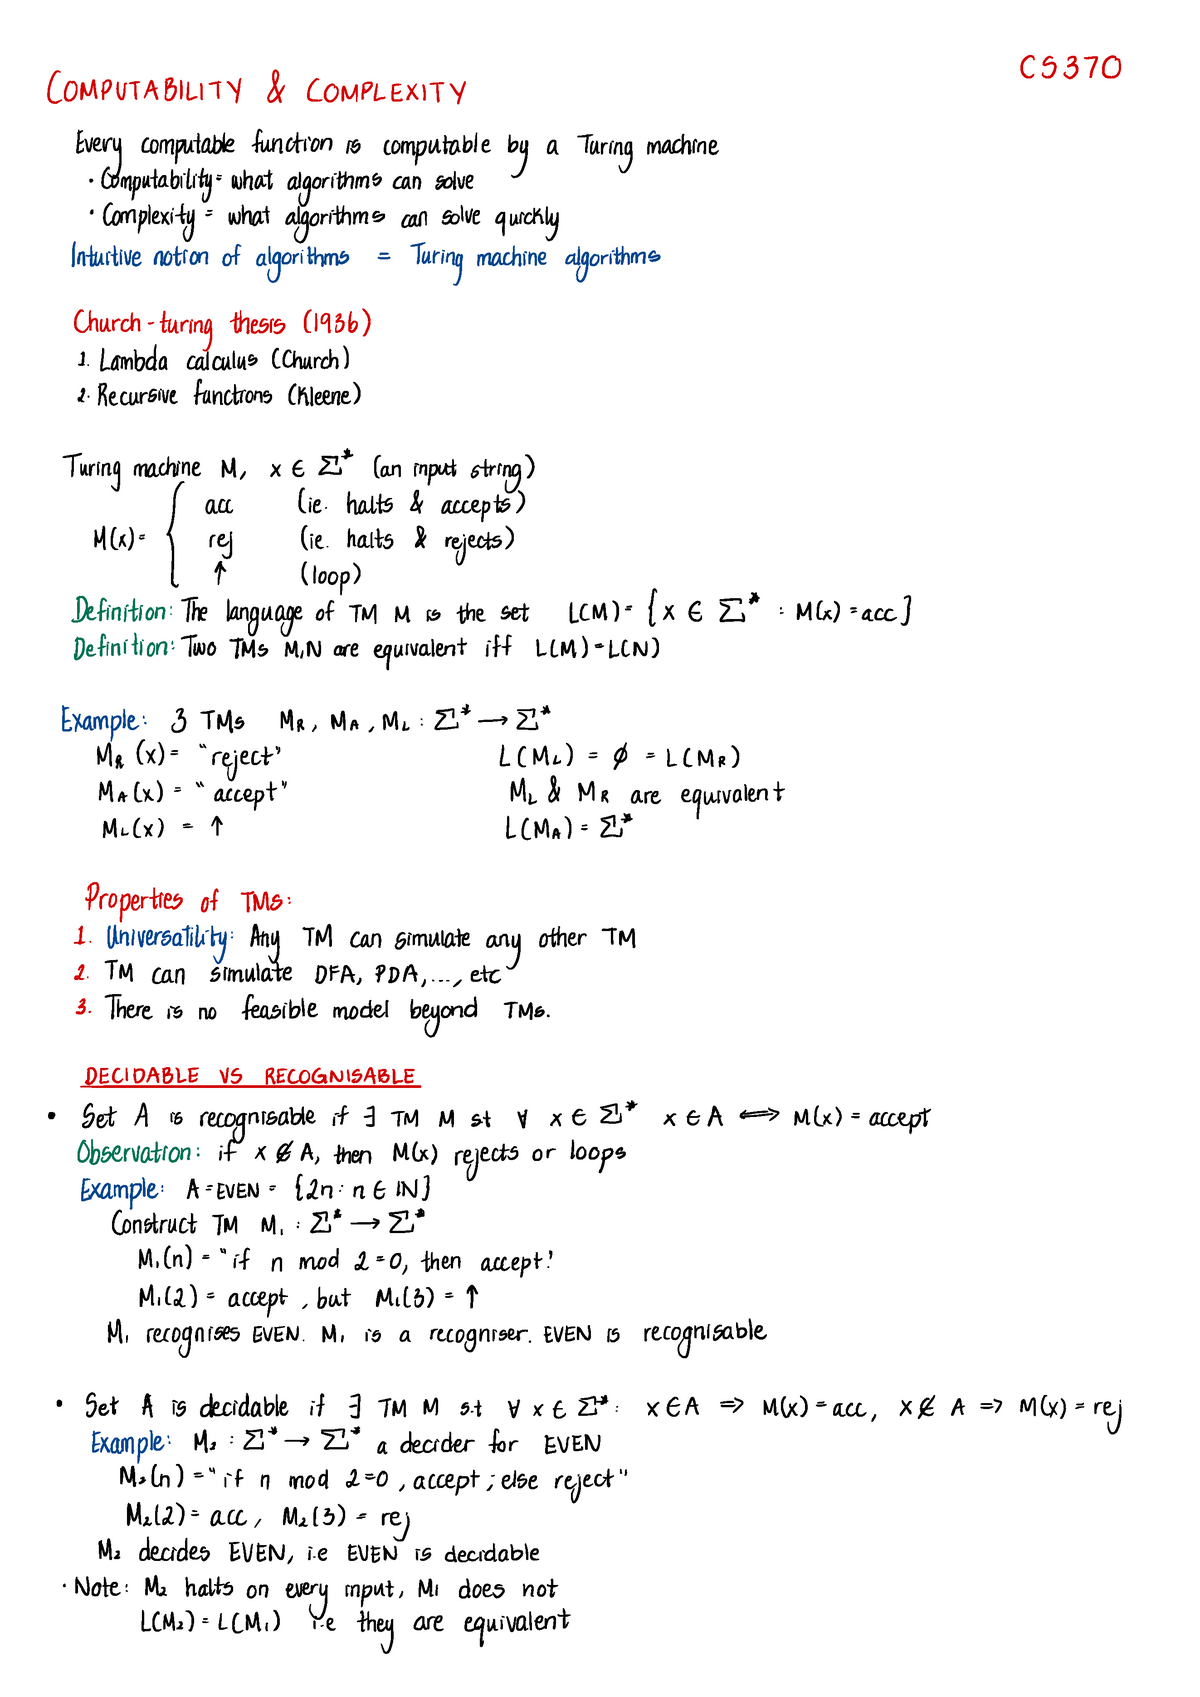 CS370
COMPUTABILITY & COMPLEXITY
Every computable function is computable by a Turing machine
· Computability = what algorithms can solve
· Complexity = what algorithms can solve quickly
Intuitive notion of algorithms = Turing machine algorithms
Church-turing thesis (1936)
1. Lambda calculus (Church)
2. Recursive functions (Kleene)
Turing machine M, x ∈ Σ* (an input string)
M(x) = { acc (ie. halts & accepts)
rej (ie. halts & rejects)
↑ (loop)
Definition: The language of TM M is the set L(M) = {x ∈ Σ* : M(x) = acc}
Definition: Two TMs M,N are equivalent iff L(M) = L(N)
Example: 3 TMs M_R, M_A, M_L : Σ* → Σ*
M_R (x) = "reject" L(M_L) = ∅ = L(M_R)
M_A(x) = "accept" M_L & M_R are equivalent
M_L(x) = ↑ L(M_A) = Σ*
Properties of TMs:
1. Universatility: Any TM can simulate any other TM
2. TM can simulate DFA, PDA,..., etc
3. There is no feasible model beyond TMs.
DECIDABLE VS RECOGNISABLE
• Set A is recognisable if ∃ TM M st ∀ x ∈ Σ* x ∈ A ⟺ M(x) = accept
Observation: if x ∉ A, then M(x) rejects or loops
Example: A = EVEN = {2n : n ∈ ℕ}
Construct TM M₁ : Σ* → Σ*
M₁(n) = "if n mod 2 = 0, then accept"
M₁(2) = accept, but M₁(3) = ↑
M₁ recognises EVEN. M₁ is a recogniser. EVEN is recognisable
• Set A is decidable if ∃ TM M s.t ∀ x ∈ Σ* : x ∈ A ⇒ M(x) = acc, x ∉ A ⇒ M(x) = rej
Example: M₂ : Σ* → Σ* a decider for EVEN
M₂(n) = "if n mod 2 = 0, accept; else reject"
M₂(2) = acc, M₂(3) = rej
M₂ decides EVEN, i.e EVEN is decidable
· Note: M₂ halts on every input, M₁ does not
L(M₂) = L(M₁) i.e they are equivalent